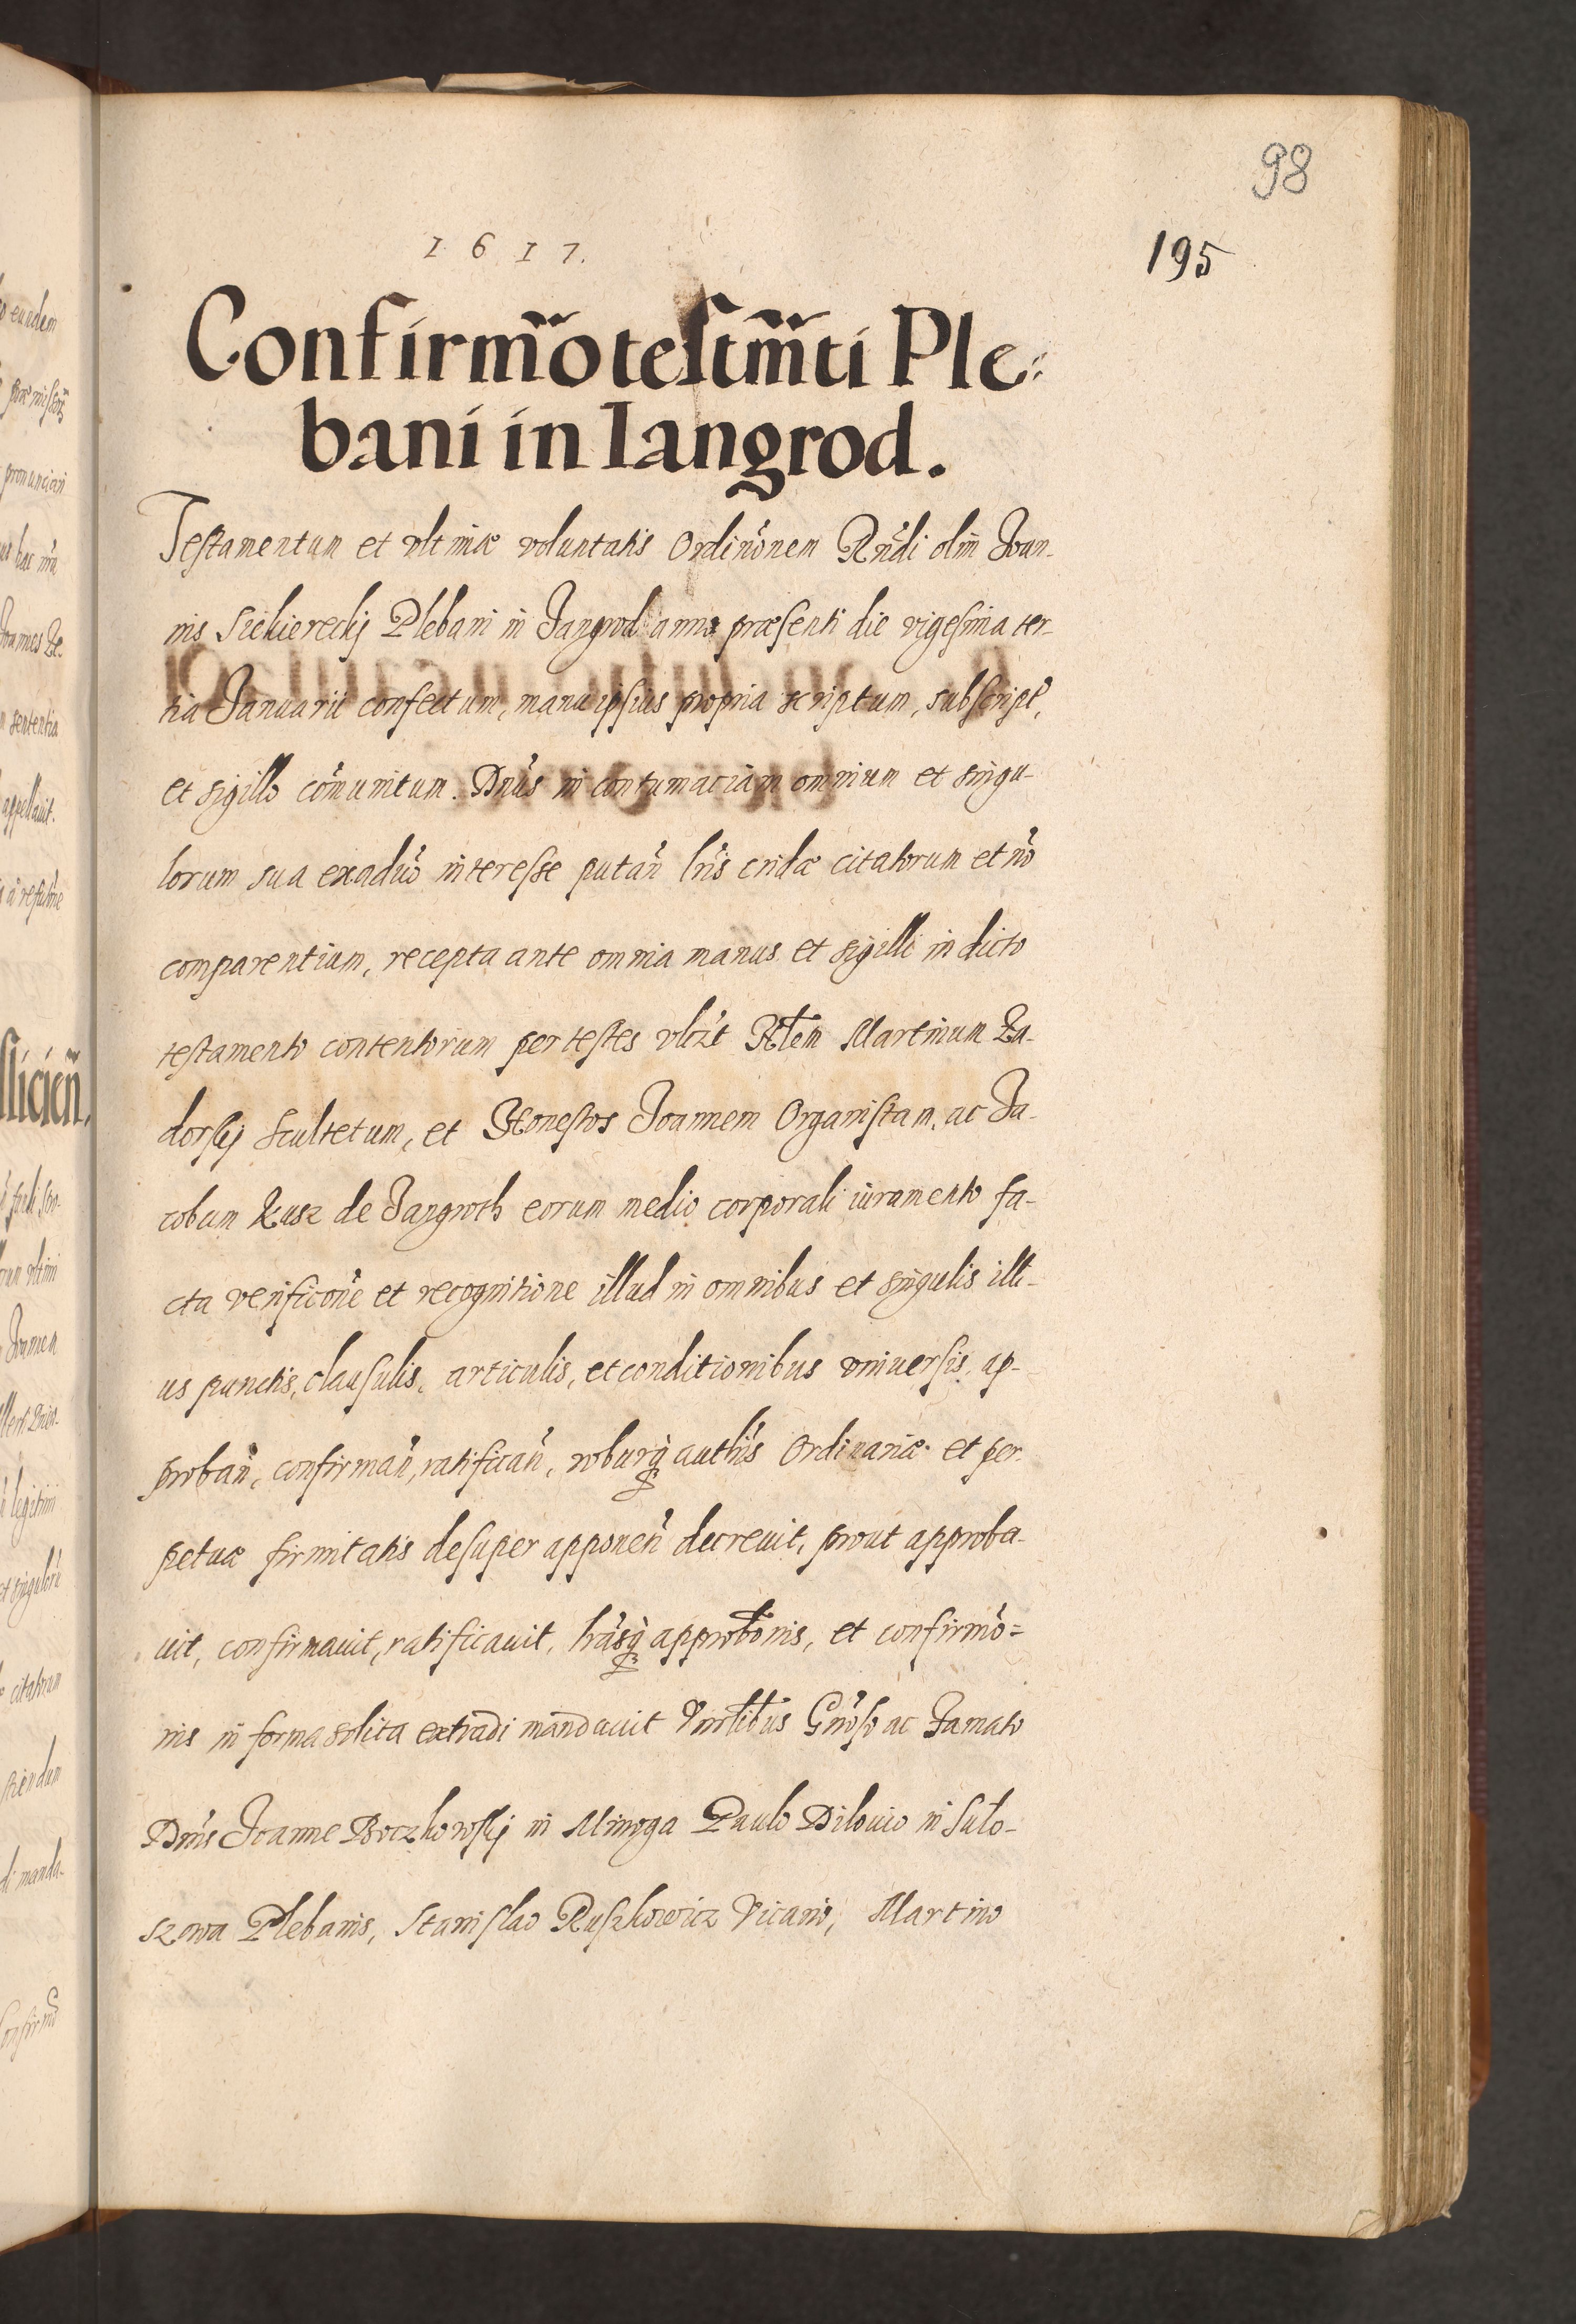 98
195
1617.
Confirm̃o testm̃ti Ple:
bani in Iangrod.
Testamentum et vltimæ voluntatis Ordinõnem Rñdi olim Ioan-
nis Siekierecky Plebani in Jangrod anno præsenti die vigesima ter-
tia Januarii confectum, manu ipsius propria scriptum, subscript̃,
et sigillo cõmunitum. Dñus in contumaciam omnium et singu-
lorum sua exaduõ interesse putañ lr̃is cridæ citatorum et nõ
comparentium, recepta ante omnia manus et sigilli in dicto
testamento contentorum per testes vlr̃zt Hlem Martinum Za-
dorsky Scultetum, et Honestos Joannem Organistam, ac Ja-
cobum Kusz de Jangroth eorum medio corporali iuramento fa-
cta verificõne et recognitione illud in omnibus et singulis illi-
us punctis, clausulis, articulis, et conditionibus vniuersis, ap-
probañ, confirmañ, ratificañ, roburq̃ authĩs Ordinariæ et per-
petuæ firmitatis desuper apponeñ decreuit, prout approba-
uit, confirmauit, ratificauit, lr̃asq̃ approbõnis, et confirmõ=
nis in forma solita extradi mandauit Vnrlibus Gñoso ac Famato
Dñis Joanne Boczkowsky in Minoga Paulo Dilouio in Sulo-
szowa Plebanis, Stanislao Ruszkowicz Vicario, Martino